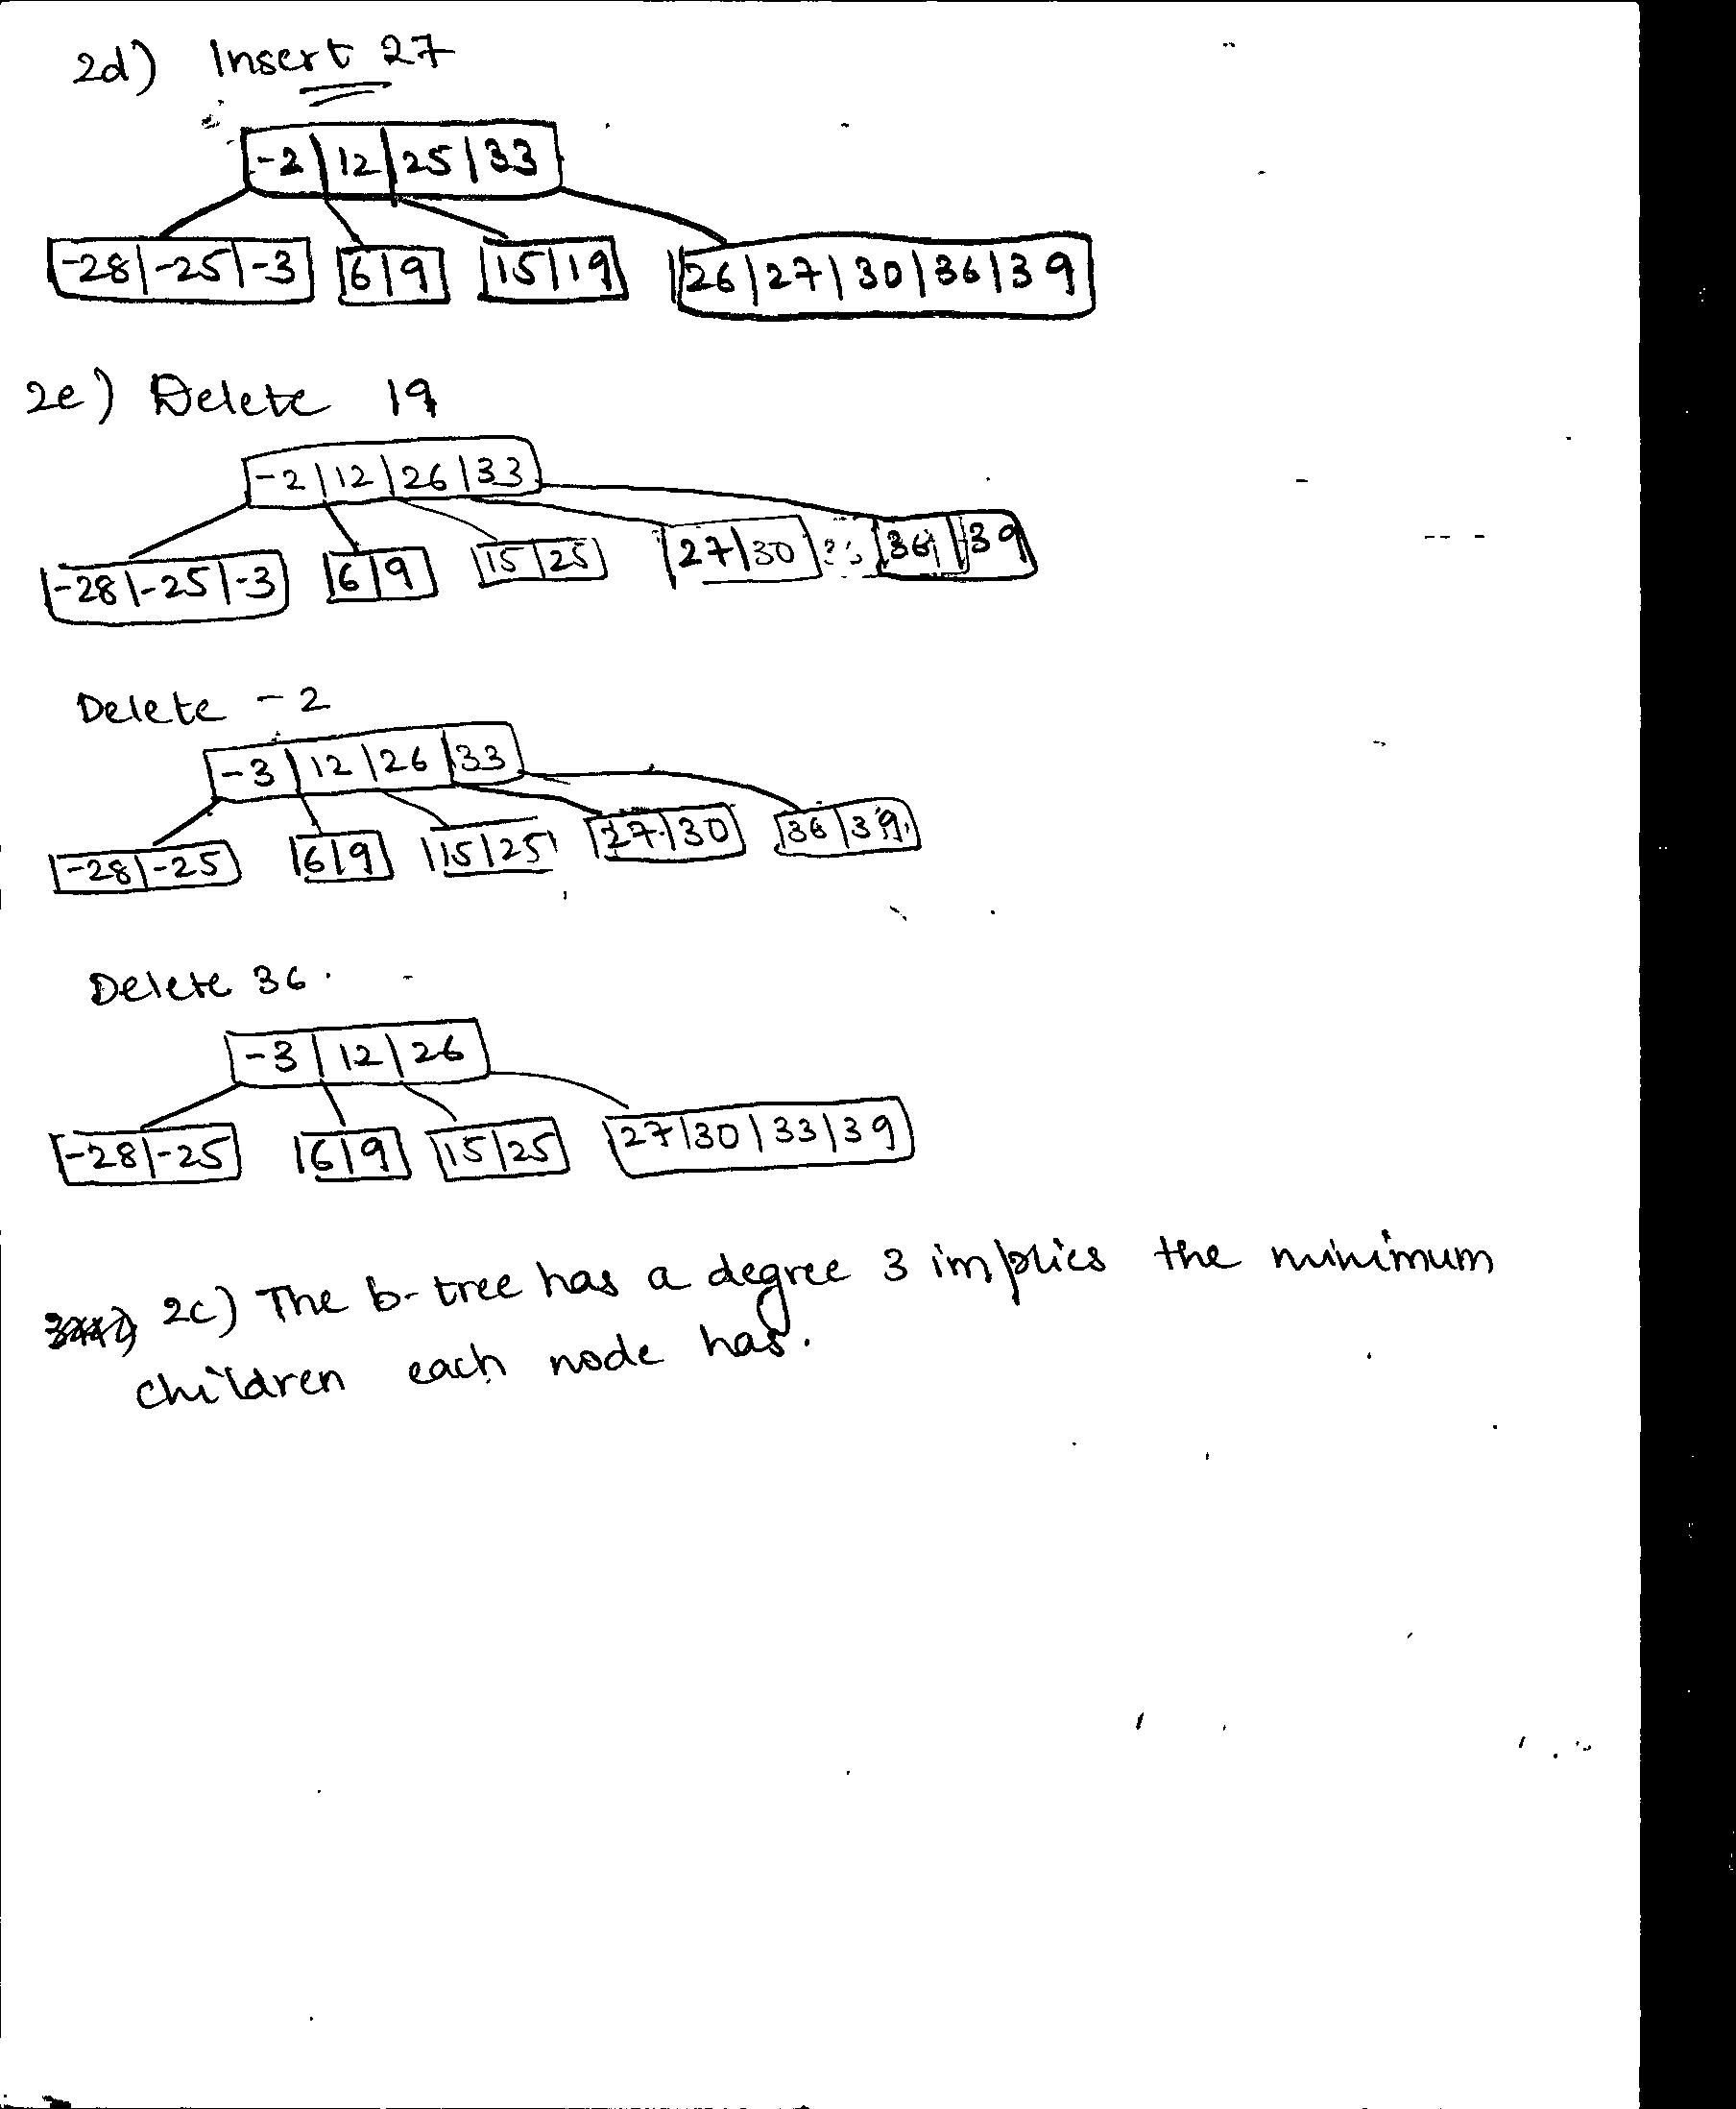 2d) Insert 27
-2 | 12 | 25 | 33
-28 | -25 | -3   6 | 9   15 | 19   26 | 27 | 30 | 36 | 39
2e) Delete 19
-2 | 12 | 26 | 33
-28 | -25 | -3   6 | 9   15 | 25   27 | 30   36 | 39
Delete -2
-3 | 12 | 26 | 33
-28 | -25   6 | 9   15 | 25   27 | 30   36 | 39
Delete 36.
-3 | 12 | 26
-28 | -25   6 | 9   15 | 25   27 | 30 | 33 | 39
2c) The b-tree has a degree 3 implies the minimum
children each node has.